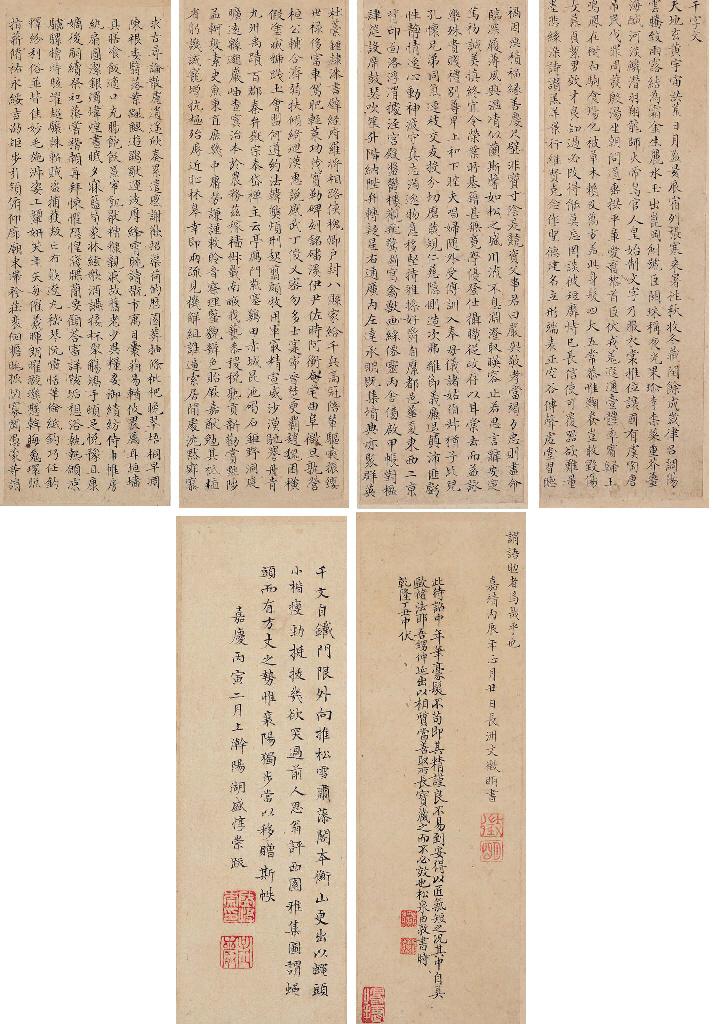 千字文
天地玄黃宇宙洪荒日月盈昃辰宿列張寒來暑往秋收冬藏閏餘成歲律呂調陽
雲騰致雨露結為霜金生麗水玉出崑岡劍號巨闕珠稱夜光果珍李柰菜重芥薑
海鹹河淡鱗潛羽翔龍師火帝鳥官人皇始制文字乃服衣裳推位讓國有虞陶唐
弔民伐罪周發殷湯坐朝問道垂拱平章愛育黎首臣伏戎羌遐邇壹體率賓歸王
鳴鳳在樹白駒食場化被草木賴及萬方蓋此身髮四大五常恭惟鞠養豈敢毀傷
女慕貞絜男效才良知過必改得能莫忘罔談彼短靡恃己長信使可覆器欲難量
墨悲絲染詩讚羔羊景行維賢克念作聖德建名立形端表正空谷傳聲虛堂習聽
禍因惡積福緣善慶尺璧非寶寸陰是競資父事君曰嚴與敬孝當竭力忠則盡命
臨深履薄夙興溫凊似蘭斯馨如松之盛川流不息淵澄取映容止若思言辭安定
篤初誠美慎終宜令榮業所基籍甚無竟學優登仕攝職從政存以甘棠去而益詠
樂殊貴賤禮別尊卑上和下睦夫唱婦隨外受傅訓入奉母儀諸姑伯叔猶子比兒
孔懷兄弟同氣連枝交友投分切磨箴規仁慈隱惻造次弗離節義廉退顛沛匪虧
性靜情逸心動神疲守真志滿逐物意移堅持雅操好爵自縻都邑華夏東西二京
背邙面洛浮渭據涇宮殿盤鬱樓觀飛驚圖寫禽獸畫綵仙靈丙舍傍啟甲帳對楹
肆筵設席鼓瑟吹笙升階納陛弁轉疑星右通廣內左達承明既集墳典亦聚群英
杜稿鍾隸漆書壁經府羅將相路俠槐卿戶封八縣家給千兵高冠陪輦驅轂振纓
世祿侈富車駕肥輕策功茂實勒碑刻銘磻溪伊尹佐時阿衡奄宅曲阜微旦孰營
桓公匡合濟弱扶傾綺迴漢惠說感武丁俊乂密勿多士寔寧晉楚更霸趙魏困橫
假途滅虢踐土會盟何遵約法韓弊煩刑起翦頗牧用軍最精宣威沙漠馳譽丹青
九州禹跡百郡秦并嶽宗泰岱禪主云亭雁門紫塞雞田赤城昆池碣石鉅野洞庭
曠遠緜邈巖岫杳冥治本於農務茲稼穡俶載南畝我藝黍稷稅熟貢新勸賞黜陟
孟軻敦素史魚秉直庶幾中庸勞謙謹敕聆音察理鑑貌辨色貽厥嘉猷勉其祗植
省躬譏誡寵增抗極殆辱近恥林皋幸即兩疏見機解組誰逼索居閒處沉默寂寥
求古尋論散慮逍遙欣奏累遣慼謝歡招渠荷的歷園莽抽條枇杷晚翠梧桐早凋
陳根委翳落葉飄颻游鵾獨運凌摩絳霄耽讀翫市寓目囊箱易輶攸畏屬耳垣牆
具膳餐飯適口充腸飽飫烹宰飢厭糟糠親戚故舊老少異糧妾御績紡侍巾帷房
紈扇圓潔銀燭煒煌晝眠夕寐藍筍象床絃歌酒讌接杯舉觴矯手頓足悅豫且康
嫡後嗣續祭祀烝嘗稽顙再拜悚懼恐惶牋牒簡要顧答審詳骸垢想浴執熱願涼
驢騾犢特駭躍超驤誅斬賊盜捕獲叛亡布射遼丸嵇琴阮嘯恬筆倫紙鈞巧任釣
釋紛利俗並皆佳妙毛施淑姿工顰妍笑年矢每催羲暉朗曜璇璣懸斡晦魄環照
指薪修祐永綏吉劭矩步引領俯仰廊廟束帶矜莊徘徊瞻眺孤陋寡聞愚蒙等誚
謂語助者焉哉乎也
嘉靖丙辰年月廿日長洲文徵明書
此待詔中年筆豪髮不苟即其精謹良不易到安得以匠氣短之況其中自具
歐陽法耶吾甥出以相質當善取所長寶藏之而不必效也松泉由敦書時
乾隆丁丑中伏
千文自鐵門限外向推松雪爾藻閣本衡山更出以蠅頭
小楷瘦勁挺拔幾欲突過前人思翁評西園雅集圖謂蠅
頭而有方丈之勢惟襄陽獨步當以移贈斯帙
嘉慶丙寅二月上澣陽湖盛惇崇跋
徵明